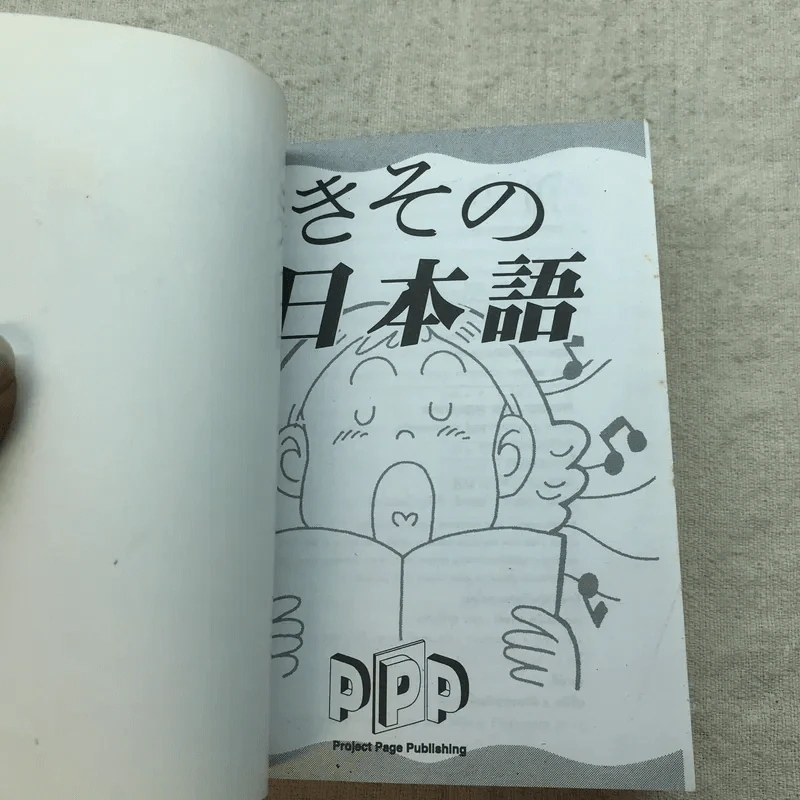 きその
日本語
PPP
Project Page Publishing